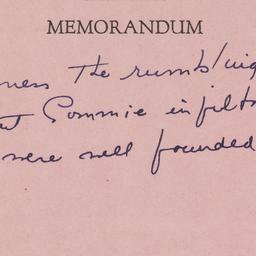 MEMORANDUM
ness The rumbling
t Commie infilt
were well founded